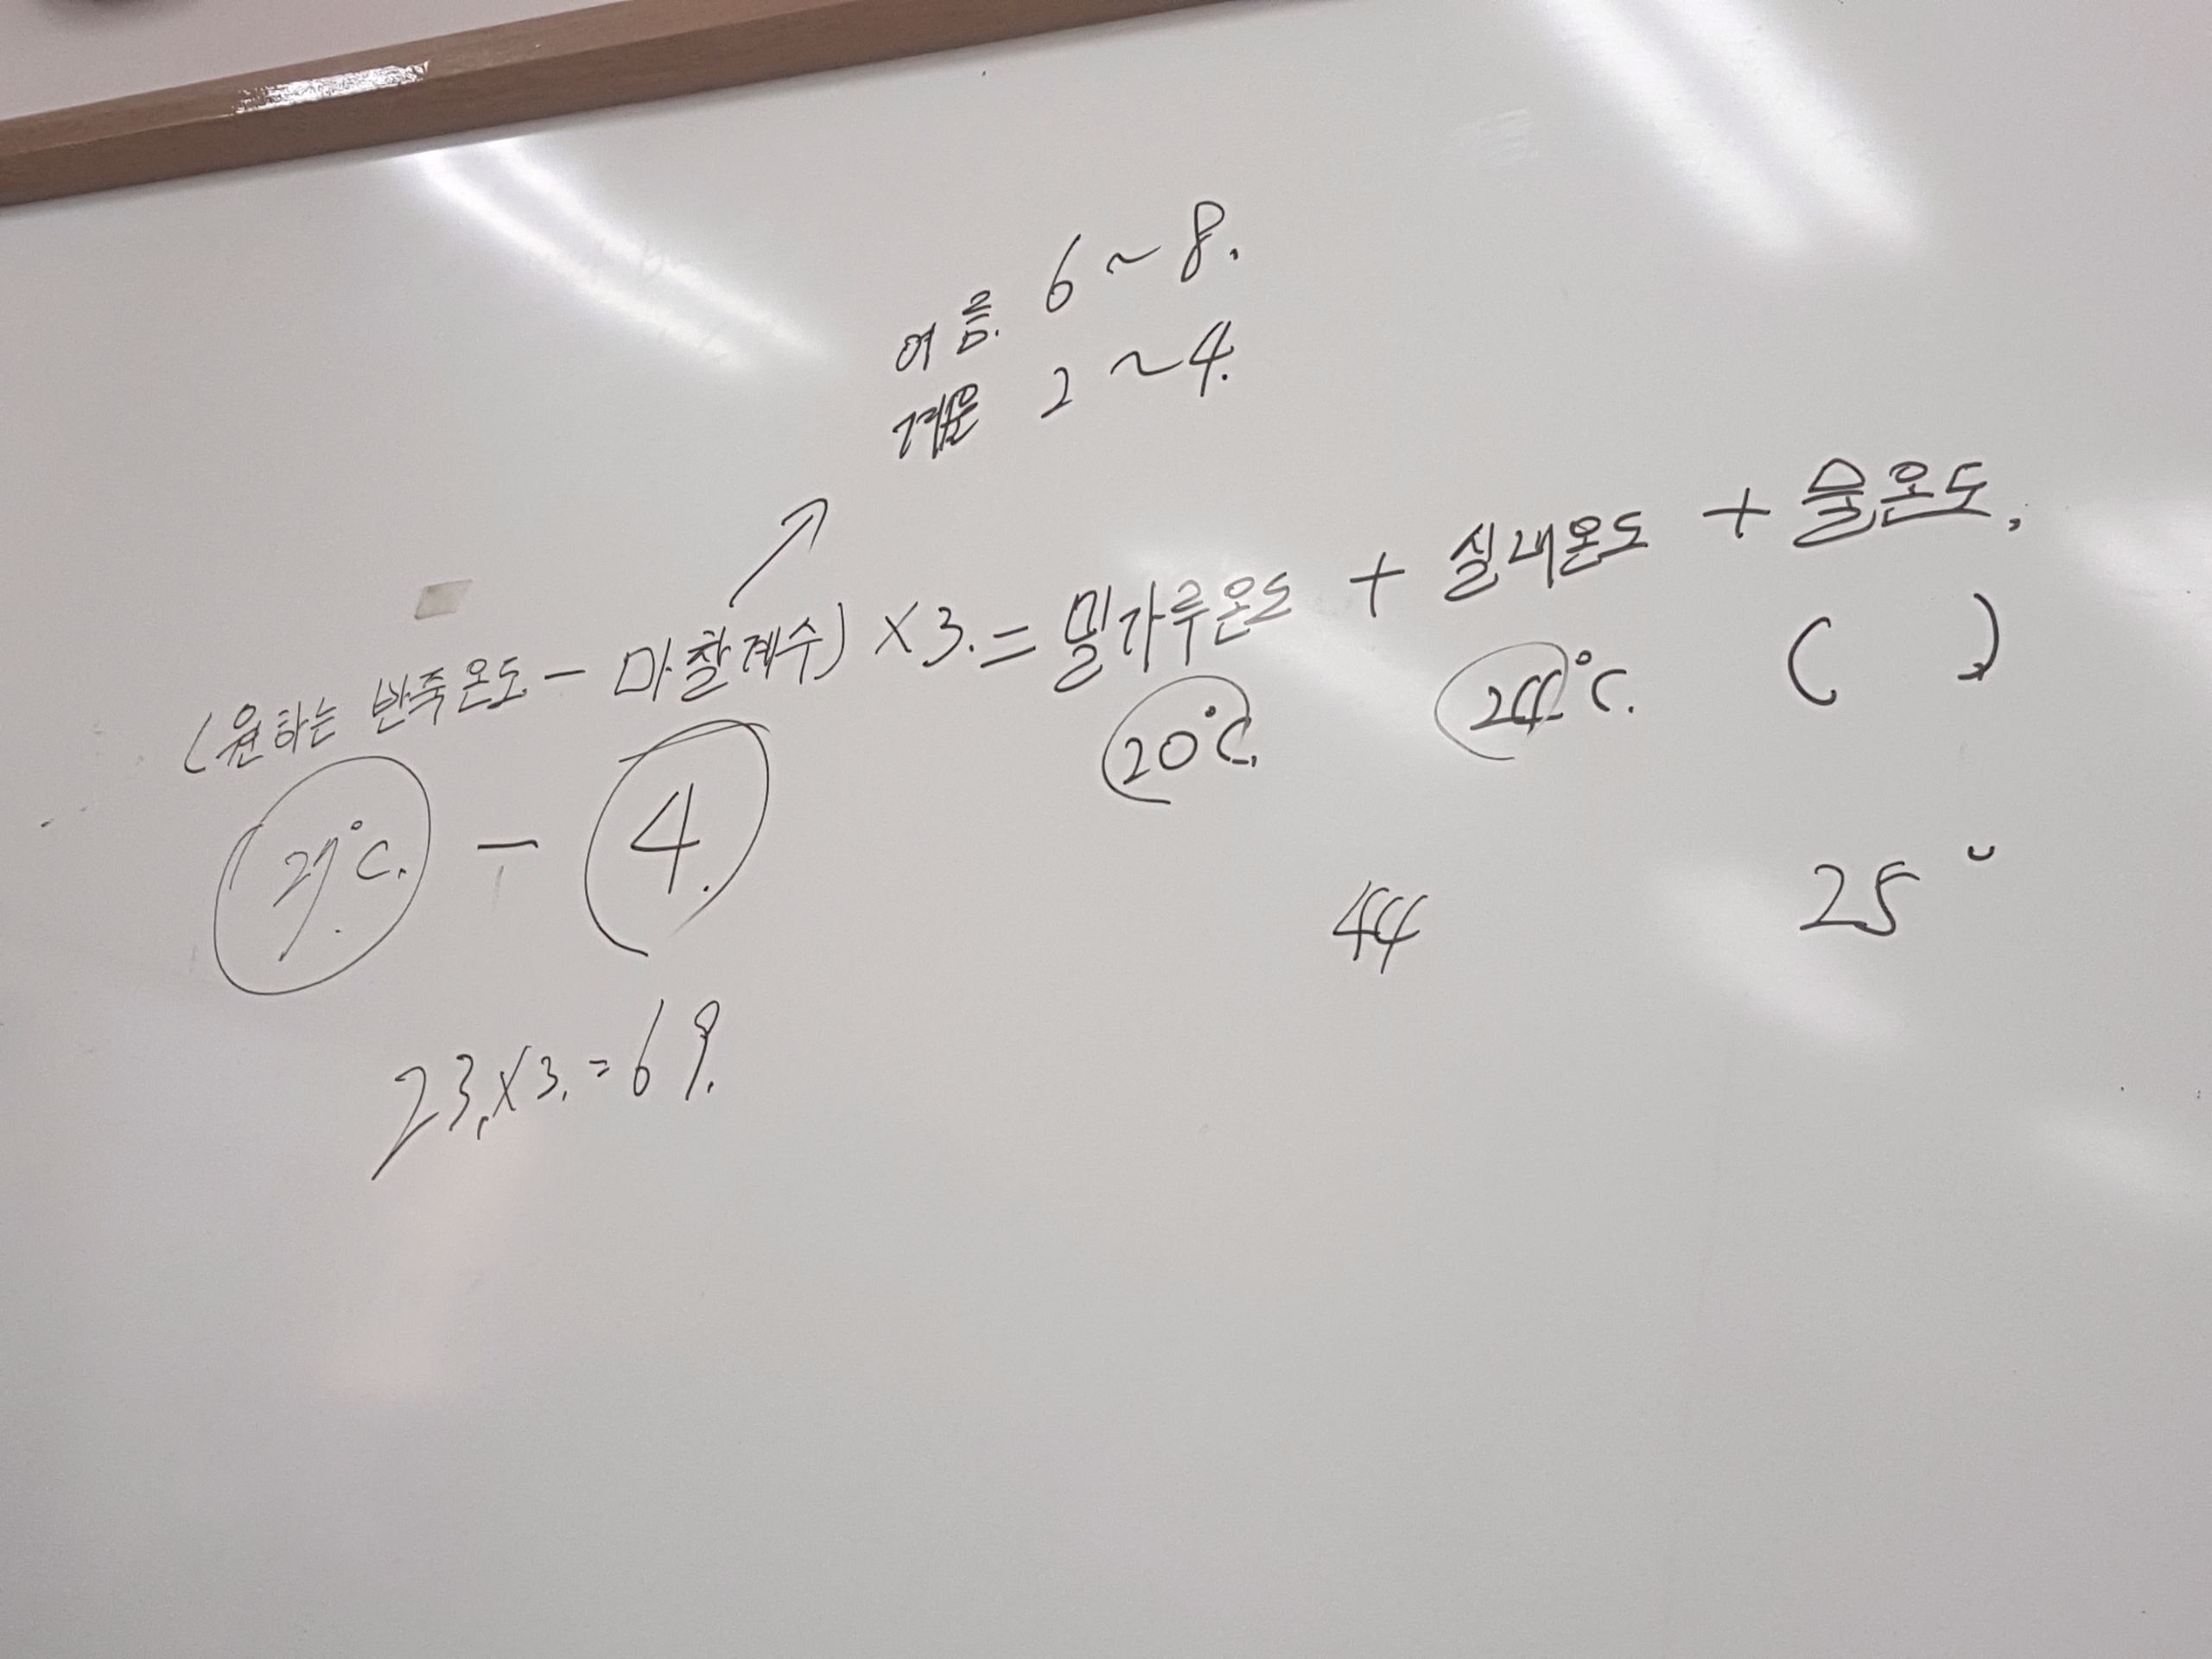 여름. 6 ~ 8.
겨울 2 ~ 4.
(원하는 반죽온도 - 마찰계수) X 3. = 밀가루온도 + 실내온도 + 물온도.
27°C. - 4. 20°C. 24°C. ( )
44 25°
23. X 3. = 69.